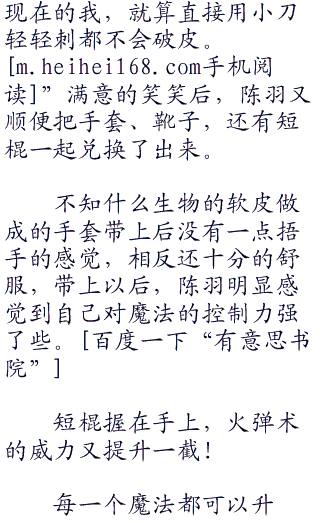 现在的我，就算直接用小刀
轻轻刺都不会破皮。
[m.heihei168.com手机阅
读]”满意的笑笑后，陈羽又
顺便把手套、靴子，还有短
棍一起兑换了出来。
不知什么生物的软皮做
成的手套带上后没有一点捂
手的感觉，相反还十分的舒
服，带上以后，陈羽明显感
觉到自己对魔法的控制力强
了些。[百度一下“有意思书
院”]
短棍握在手上，火弹术
的威力又提升一截！
每一个魔法都可以升